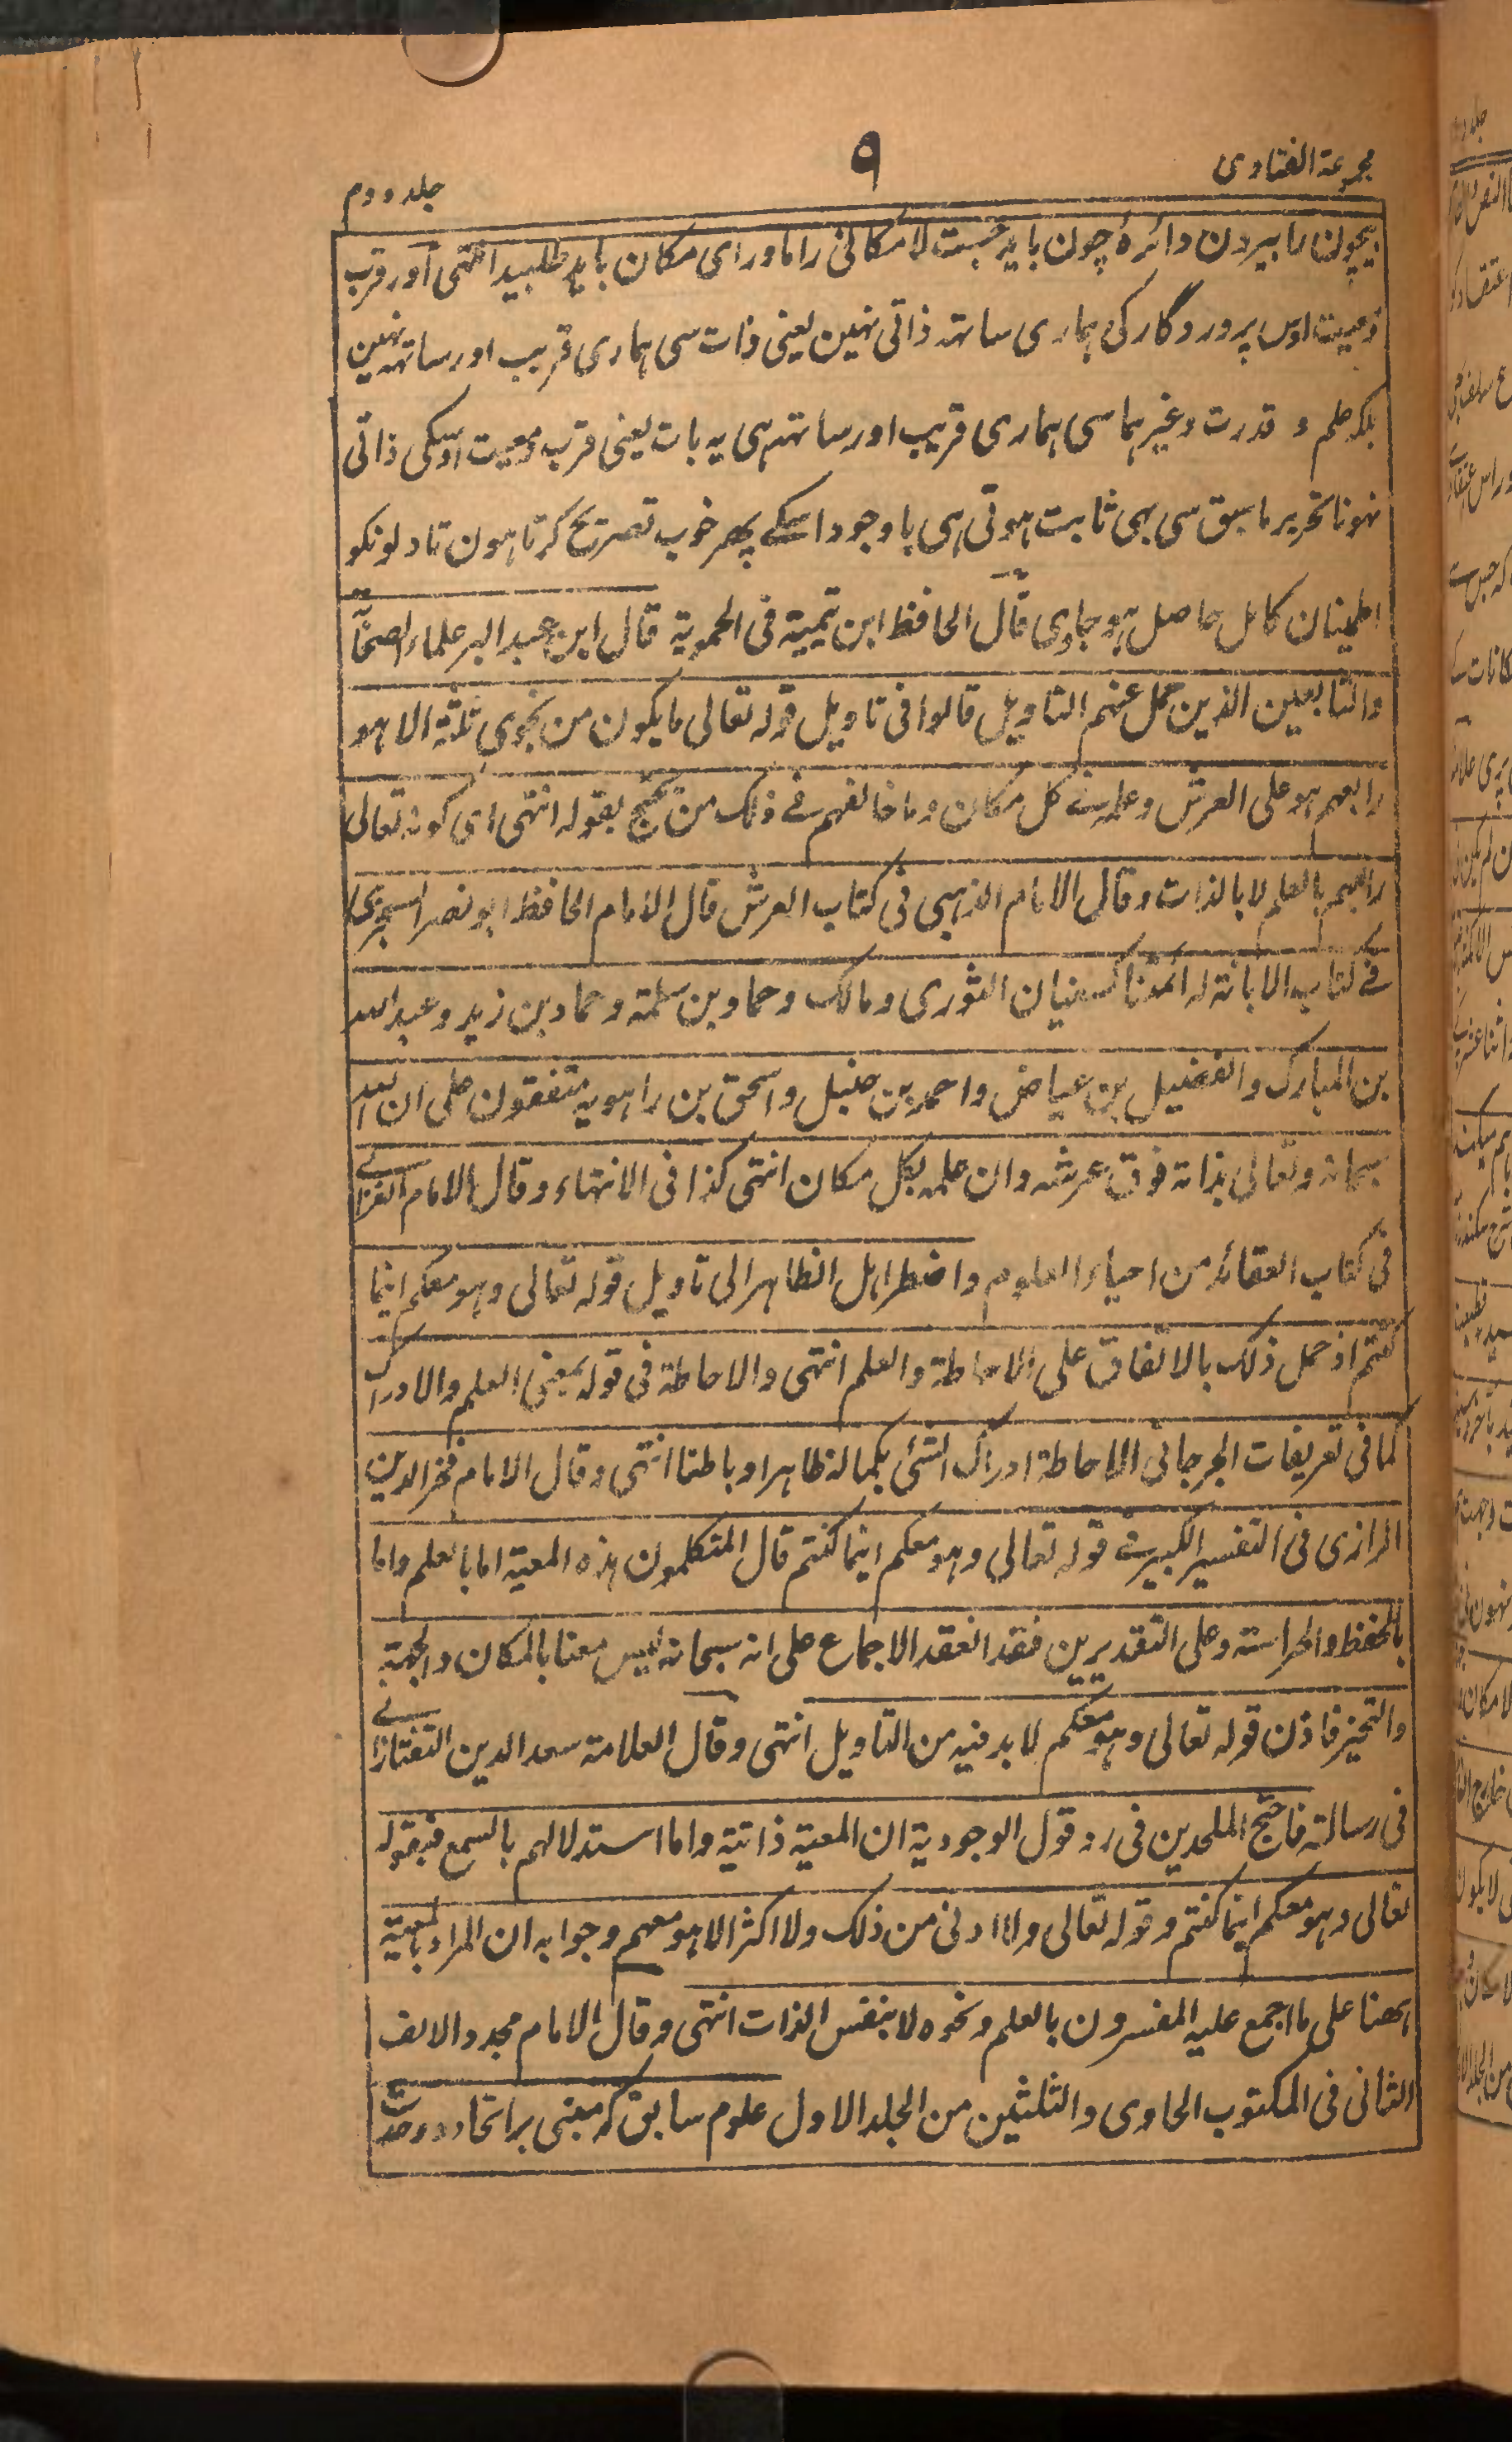 مجموعة الفتاوى
٩
جلد دوم
بیچون را بیرون دائرۂ چون باید جست لامکانی را ماورای مکان باید طلبید انتہی اور قرب
ومعیت اوس پروردگار کی ہماری ساتہ ذاتی نہین یعنی ذات سی ہماری قریب اور ساتہہ نہین
بلکہ علم و قدرت وغیرہما سی ہماری قریب اور ساتہہ ہی یہ بات یعنی قرب ومعیت اوسکی ذاتی
نہونا تحریر ماسبق سی بہی ثابت ہوتی ہی باوجود اسکے پھر خوب تصریح کرتا ہون تا دلونکو
اطمینان کامل حاصل ہو جاوی قال الحافظ ابن تیمیة فی الحمویة قال ابن عبد البر علماء الصحابة
والتابعین الذین حمل عنہم التاویل قالوا فی تاویل قوله تعالی ما یکون من نجوی ثلثة الا ہو
رابعہم ہو علی العرش وعلمه فے کل مکان وما خالفہم فے ذلک من یحتج بقوله انتہی ای کونه تعالی
رابعہم بالعلم لا بالذات وقال الامام الذہبی فی کتاب العرش قال الامام الحافظ ابو نصر السجزی
فے کتاب الابانة له ائمتنا کسفیان الثوری ومالک وحماد بن سلمة وحماد بن زید وعبد اللہ
بن المبارک والفضیل بن عیاض واحمد بن حنبل واسحق بن راہویه متفقون علی ان اللہ
سبحانه وتعالی بذاته فوق عرشه وان علمه بکل مکان انتہی کذا فی الانتہاء وقال الامام الغزالے
فی کتاب العقائد من احیاء العلوم واضطر اہل الظاہر الی تاویل قوله تعالی وہو معکم اینما
کنتم اذ حمل ذلک بالاتفاق علی الاحاطة والعلم انتہی والاحاطة فی قوله بمعنی العلم والادراک
کما فی تعریفات الجرجانی الاحاطة ادراک الشئ بکماله ظاہرا وباطنا انتہی وقال الامام فخر الدین
الرازی فی التفسیر الکبیر فے قوله تعالی وہو معکم اینما کنتم قال المتکلمون ہذه المعیة اما بالعلم واما
بالحفظ والحراسته وعلی التقدیرین فقد انعقد الاجماع علی انه سبحانه لیس معنا بالمکان والجہة
والتحیز فاذن قوله تعالی وہو معکم لا بد فیه من التاویل انتہی وقال العلامة سعد الدین التفتازانے
فی رسالته فاضح الملحدین فی رد قول الوجودیة ان المعیة ذاتیة واما استدلالہم بالسمع فبقوله
تعالی وہو معکم اینما کنتم وقوله تعالی ولا ادنی من ذلک ولا اکثر الا ہو معہم وجوابه ان المراد بالمعیة
ہہنا علی ما اجمع علیه المفسرون بالعلم ونحوه لا بنفس الذات انتہی وقال الامام مجدد الالف
الثانی فی المکتوب الحاوی والثلثین من الجلد الاول علوم سابق کہ مبنی بر اتحاد و وحدت